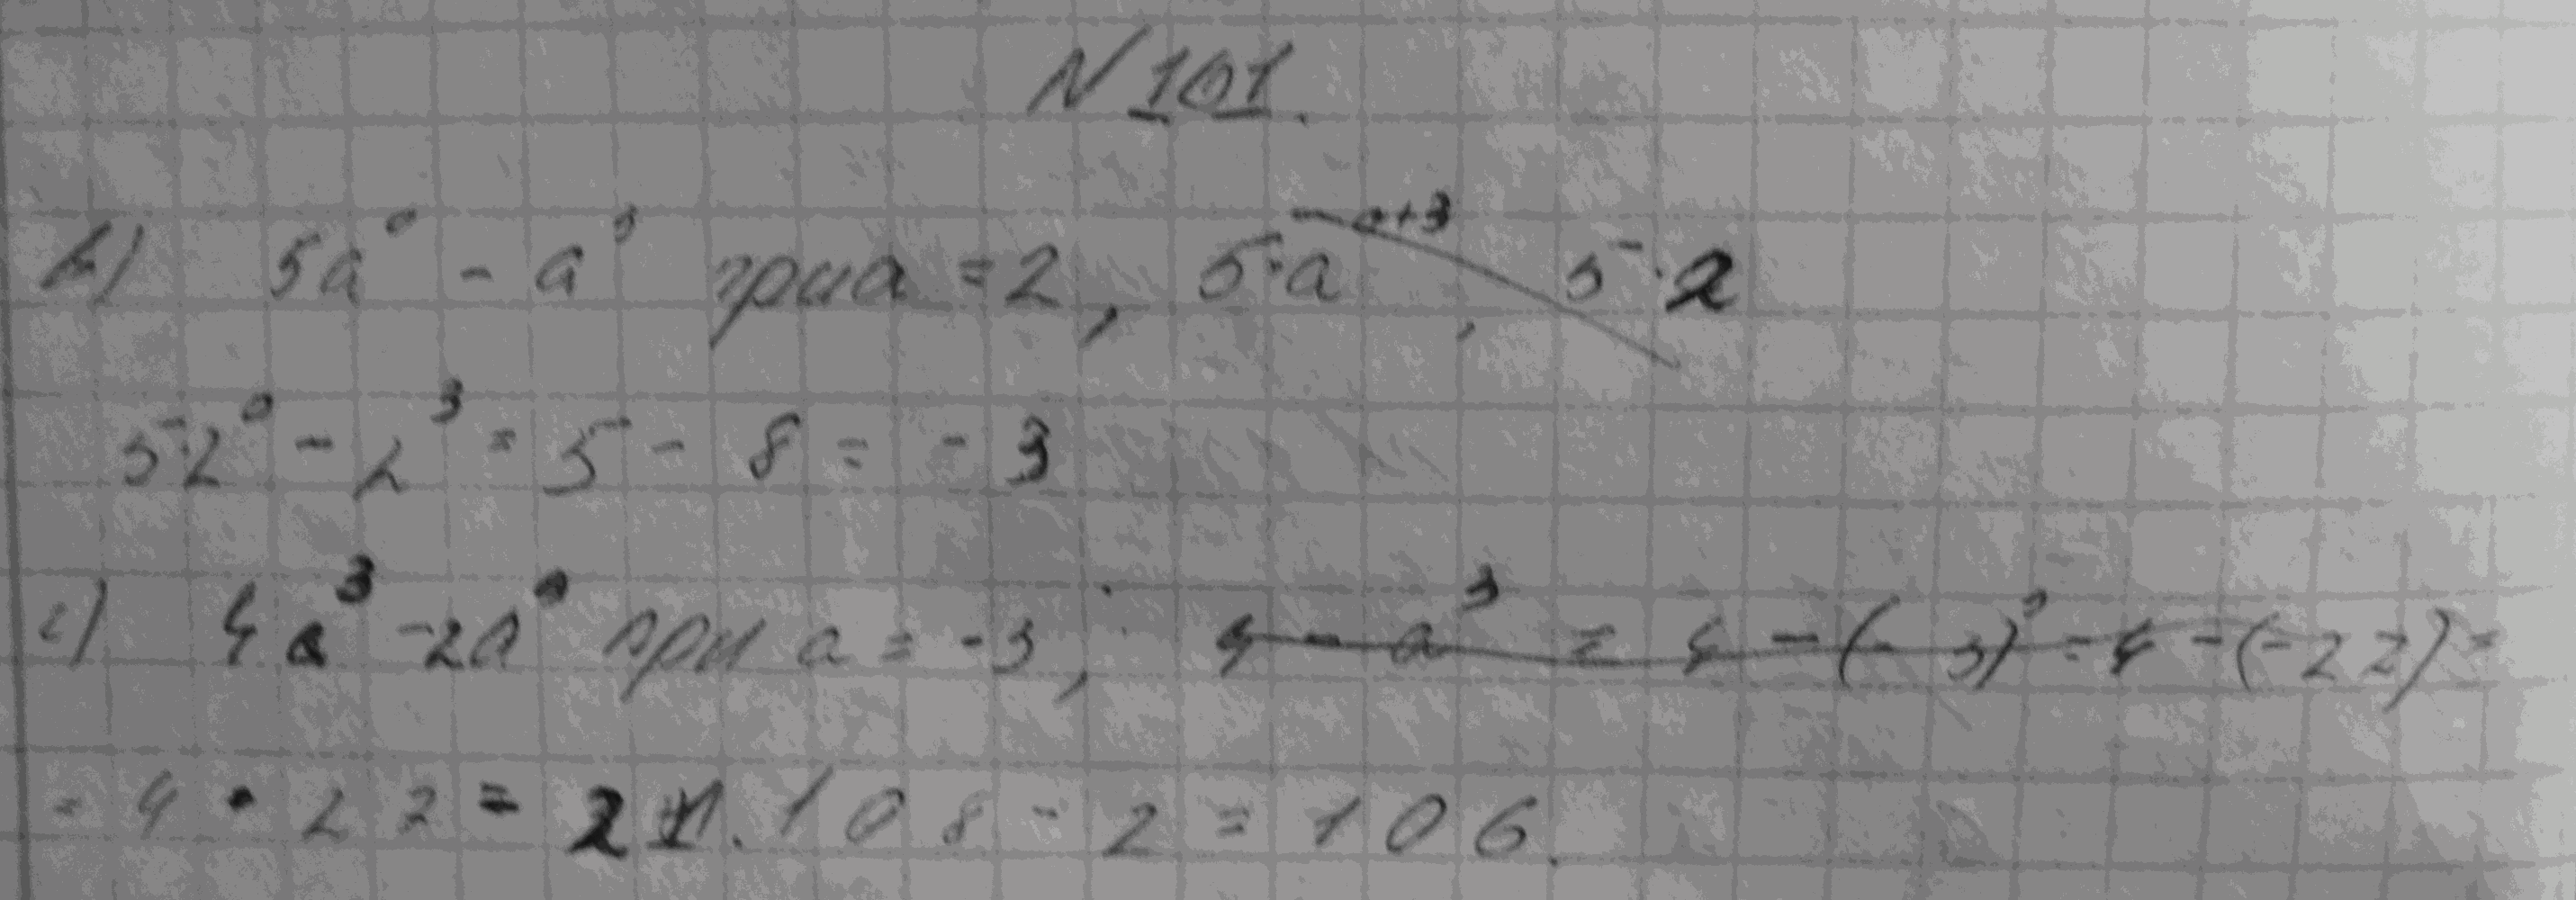 N 101.
в) 5a⁰ - a³ при a = 2, 5·a⁰⁺³, 5·2
5·2⁰ - 2³ = 5 - 8 = - 3
г) 4a³ - 2a⁰ при a = -3, 4 - a³ = 4 - (-3)³ = 4 - (-27) =
= 4 · 27 = 21. 108 - 2 = 106.